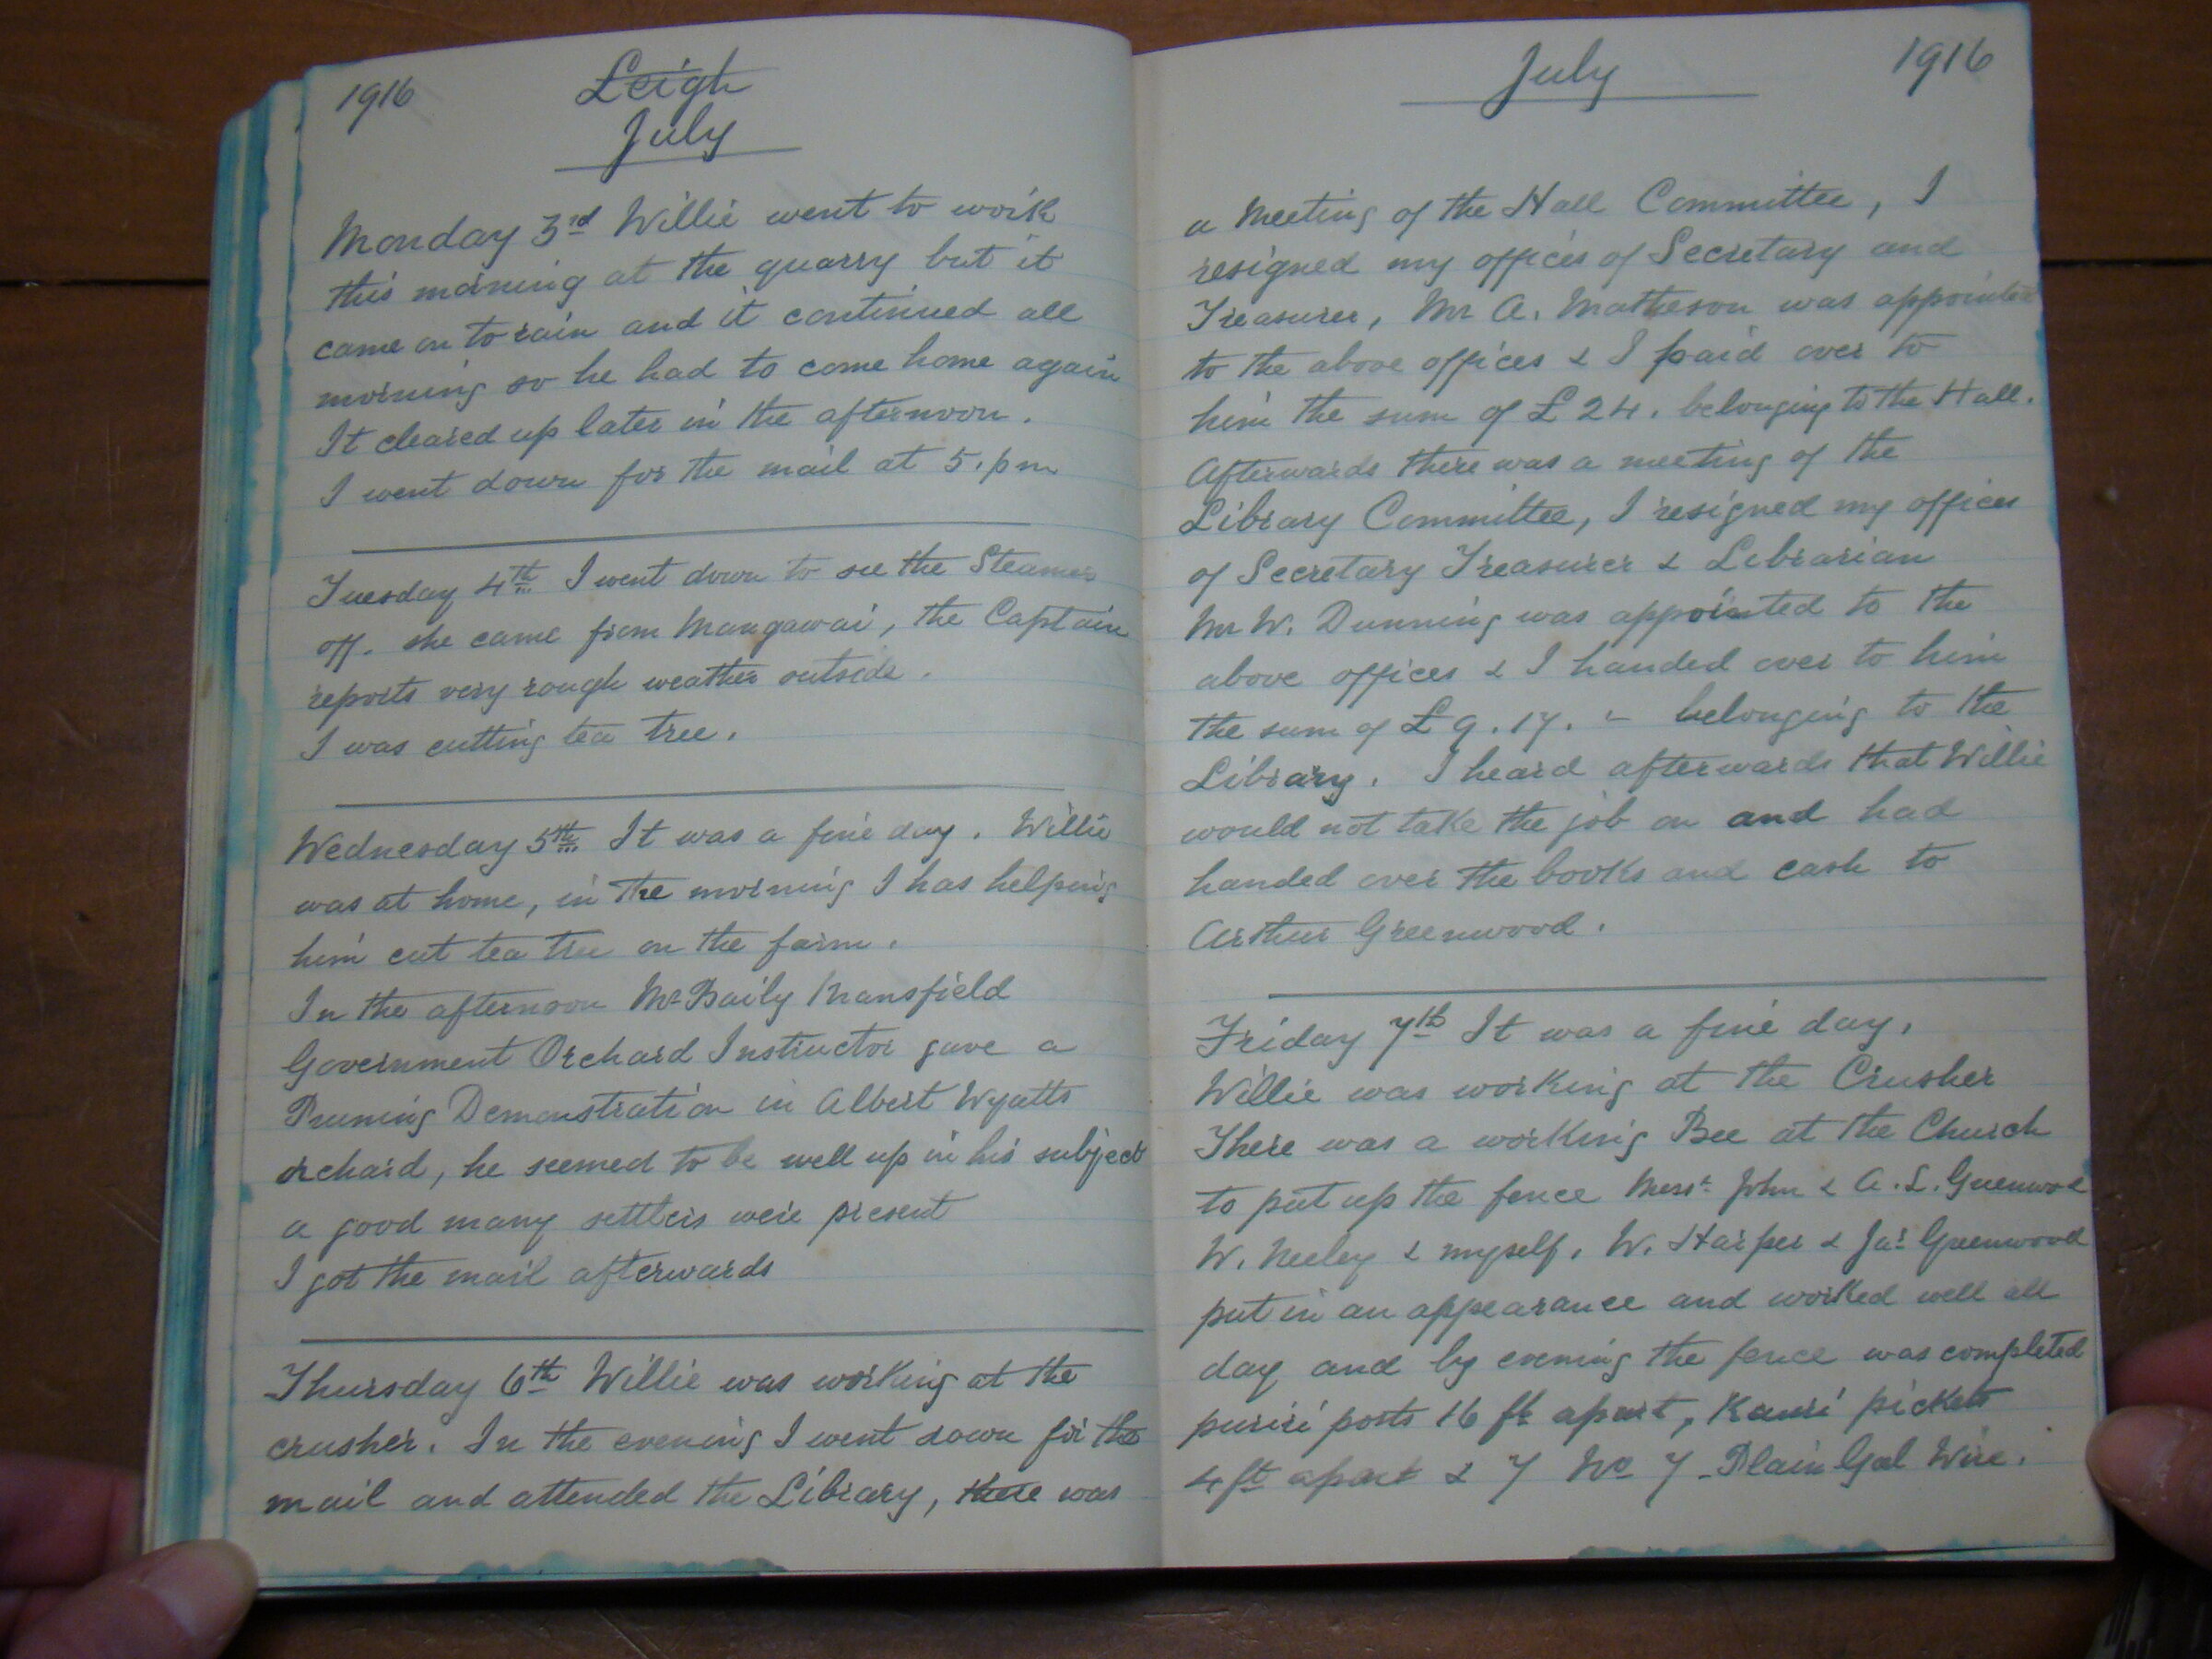 1916
Leigh
July
Monday 3rd Willie went to work
this morning at the quarry but it
came on to rain and it continued all
morning so he had to come home again
It cleared up later in the afternoon.
I went down for the mail at 5. pm
Tuesday 4th I went down to see the Steamer
off. she came from Mangawai, the Captain
reports very rough weather outside.
I was cutting tea tree.
Wednesday 5th It was a fine day. Willie
was at home, in the morning I has helping
him cut tea tree on the farm.
In the afternoon Mr Baily Mansfield
Government Orchard Instructor gave a
Pruning Demonstration in Albert Wyatts
orchard, he seemed to be well up in his subject
a good many settlers were present
I got the mail afterwards
Thursday 6th Willie was working at the
crusher. In the evening I went down for the
mail and attended the Library, there was
July
1916
a Meeting of the Hall Committee, I
resigned my offices of Secretary and
Treasurer, Mr A. Matheson was appointed
to the above offices & I paid over to
him the sum of £24. belonging to the Hall.
Afterwards there was a meeting of the
Library Committee, I resigned my offices
of Secretary Treasurer & Librarian
Mr W. Dunning was appointed to the
above offices & I handed over to him
the sum of £9.17.- belonging to the
Library. I heard afterwards that Willie
would not take the job on and had
handed over the books and cash to
Arthur Greenwood.
Friday 7th It was a fine day.
Willie was working at the Crusher
There was a working Bee at the Church
to put up the fence Messrs John & A. S. Greenwood
W. Neeley & myself. W. Harper & Jas Greenwood
put in an appearance and worked well all
day and by evening the fence was completed
puriri posts 16 ft apart, Kauri pickets
4 ft apart & 7 No 7 Plain Gal Wire.